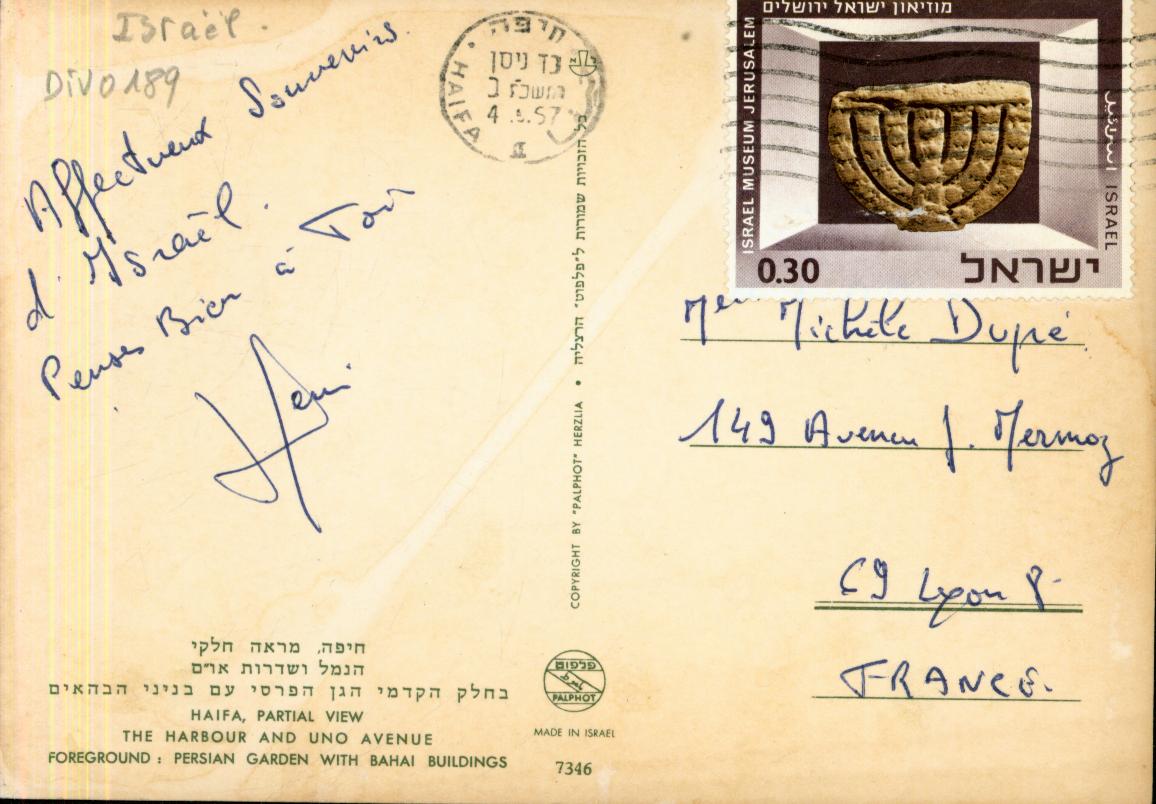 Israël.
DIVO189
Affectueux Souvenirs.
d'Israël.
Penses Bien à Toi
Henri
חיפה, מראה חלקי
הנמל ושדרות או״ם
בחלק הקדמי הגן הפרסי עם בניני הבהאים
HAIFA, PARTIAL VIEW
THE HARBOUR AND UNO AVENUE
FOREGROUND : PERSIAN GARDEN WITH BAHAI BUILDINGS
חיפה
כד ניסן
תשכז
HAIFA
כל הזכויות שמורות ל״פלפוט״ הרצליה • COPYRIGHT BY "PALPHOT" HERZLIA
פלפוט
PALPHOT
MADE IN ISRAEL
7346
מוזיאון ישראל ירושלים
ISRAEL MUSEUM JERUSALEM
اسرائيل ISRAEL
0.30 ישראל
Melle Michèle Dupré.
149 Avenue J. Mermoz
69 Lyon 8
FRANCE.